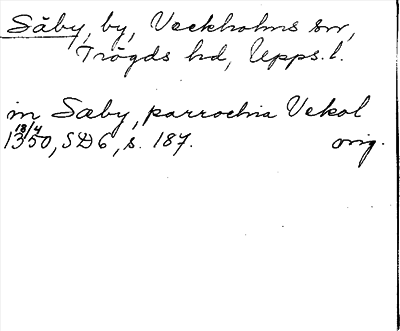 Säby, by, Veckholms sn,
Trögds hd, Upps. l.
in Sæby, parrochia Vekol
18/4
1350, SD 6, s. 187. orig.